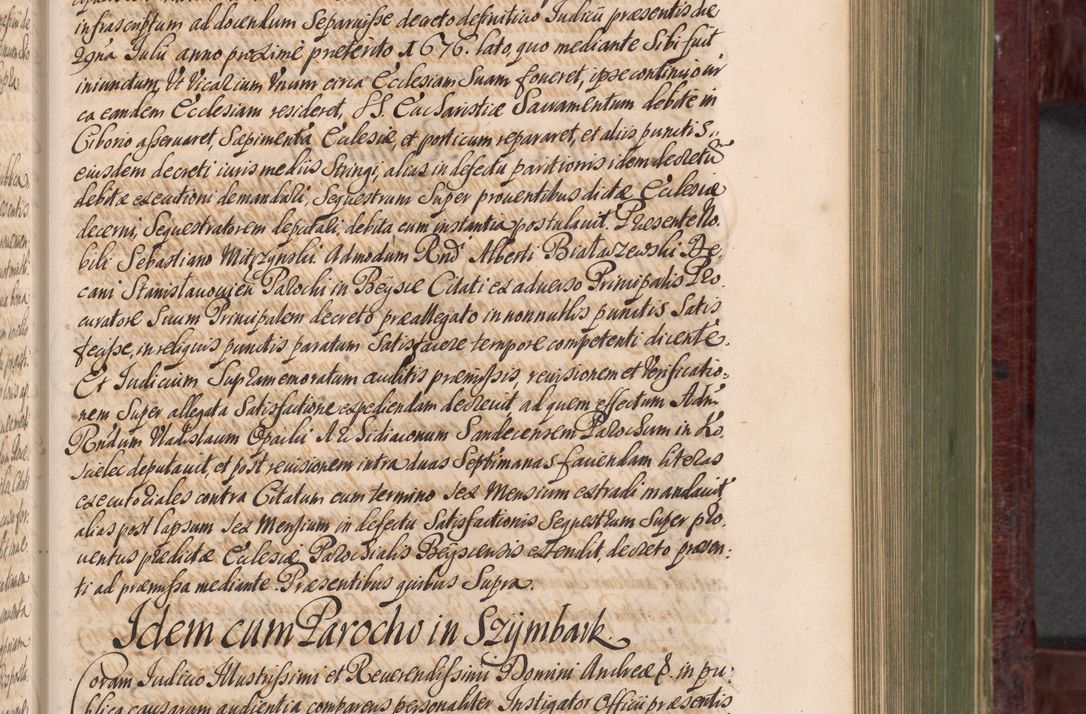 infrascriptum ad docendum Separuisse decreto definitivo Iudicii præsentis die
29na Iulii anno proxime preterito 1676. lato, quo mediante Sibi fuit
iniunctum, Ut Vicarium Unum circa Ecclesiam Suam foveret, ipse continuo cir
ca eandem Ecclesiam resideret, SS. Eucharistiæ Sacramentum debite in
Ciborio asservaret, Sæpimenta Ecclesiæ, et porticum repararet, et aliis punctis
eiusdem decreti iuris mediis Stringi, alias in defectu paritionis idem decretū
debitæ executioni demandari, Sequestrum Super proventibus dictæ Ecclesiæ
decerni, Sequestratorem deputari debita cum instantia postulavit. Præsente No.
bili Sebastiano Admodum Rnd̄ Alberti Białaczewski De.
cani Stanislavovien Parochi in Beysce Citati ex adverso Principalis Pro
curatore Suum Principalem decreto præallegato in nonnullis punctis Satis
fecisse, in reliquis punctis paratum Satisfacere tempore competenti dicente.
Et Iudicium Supramemoratum auditis præmissis, revisionem et Verificatio:
nem Super allegata Satisfactione expediendam decrevit, ad quem effectum Adm̄
Rndum Vladislaum Opacki Archidiaconum Sandecensem Parochum in Ko
scielec deputavit, et post revisionem intra duas Septimanas faciendam literas
executoriales contra Citatum cum termino Sex Mensium extradi mandavit
alias post lapsum Sex Mensium in defectu Satisfactionis Sequestrum Super pro
ventus prædictæ Ecclesiæ Parochialis Beyscensis extendit, decreto præsen:
ti ad præmissa mediante. Præsentibus quibus Supra.
Idem cum Parocho in Szymbark.
Coram Iudicio Illustrissimi et Reverendissimi Domini Andreæ &. in pu:
blica causarum audientia comparens personaliter Instigator Officii præsentis